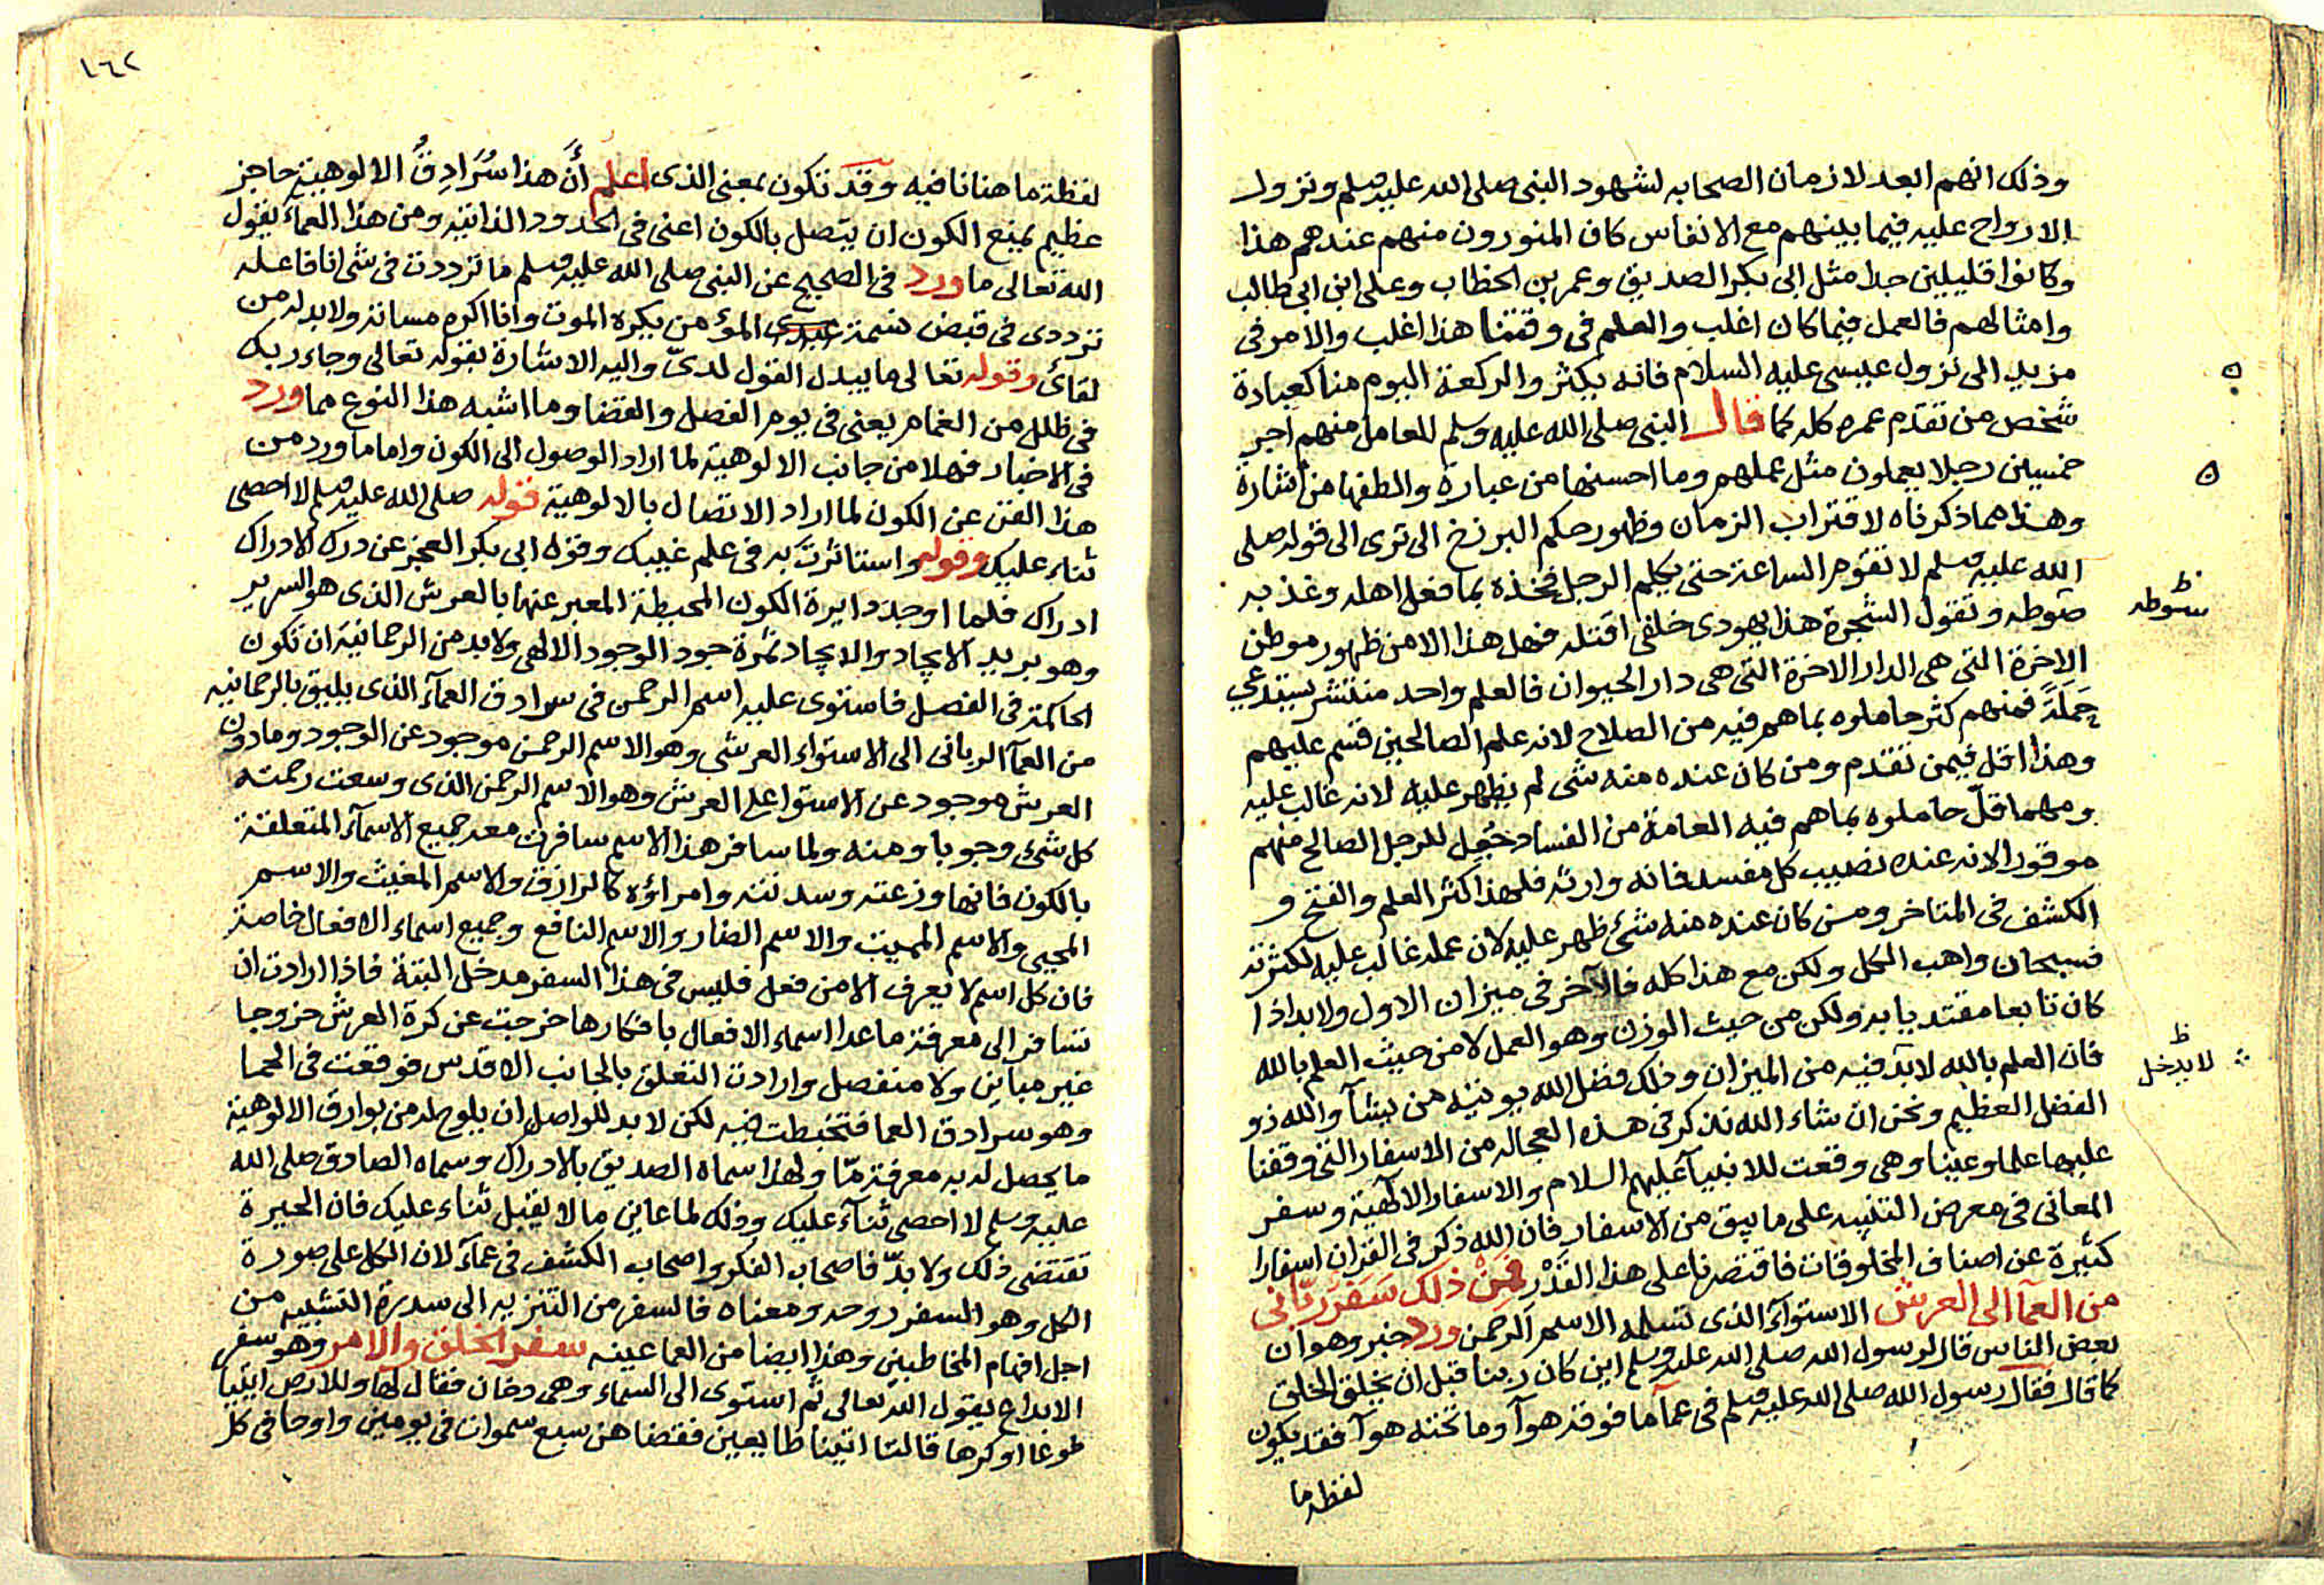 وذلك انهم ابعد لازمان الصحابه لشهود النبى صلى الله عليه وسلم ونزول
الارواح عليه فيما بينهم مع الانفاس كان المنورون منهم عندهم هذا
وكانوا قليلين جدا مثل ابى بكر الصديق وعمر بن الخطاب وعلى ابن ابى طالب
وامثالهم فالعمل فيما كان اغلب والعلم فى وقتنا هذا اغلب والامر فى
مزيد الى نزول عيسى عليه السلام فانه يكثر والركعة اليوم منا كعبادة
شخص من تقدم عمره كله كما قال النبى صلى الله عليه وسلم للعامل منهم اجر
خمسين رجلا يعملون مثل عملهم وما احسنها من عبارة والطفها من اشارة
وهذا مما ذكرناه لاقتراب الزمان وظهور حكم البرزخ الى ترى الى قوله صلى
الله عليه وسلم لا تقوم الساعة حتى يكلم الرجل فخذه بما فعل اهله وعذبه
صوطه وتقول الشجرة هذا يهودى خلفى اقتله فهل هذا الا من ظهور موطن
سوطه
ظ
الاخرة التى هى الدار الاخرة التى هى دار الحيوان فالعلم واحد منتشر يستدعى
حملة فمنهم كثر حاملوه بما هم فيه من الصلاح لانه علم الصالحين قسم عليهم
وهذا اقل فيمن تقدم ومن كان عنده منه شى لم يظهر عليه لانه غالب عليه
ومهما قلّ حاملوه بما هم فيه العامة من الفساد جُعِل للرجل الصالح منهم
موفورا لانه عنده نصيب كل مفسد فانه وارثه فلهذا كثر العلم والفتح و
الكشف فى المتاخر ومن كان عنده منه شىء ظهر عليه لان عمله غالب عليه لكثرته
فسبحان واهب الكل ولكن مع هذا كله فالآخر فى ميزان الاول ولا بد اذا
كان تابعا مقتديا به ولكن من حيث الوزن وهو العمل لا من حيث العلم بالله
فان العلم بالله لا بد فيه من الميزان وذلك فضل الله يوتيه من يشآ والله ذو
لا يدخل
ظ
الفضل العظيم ونحن ان شاء الله نذكر فى هذه العجاله من الاسفار التى وقفنا
عليها علما وعينا وهى وقعت للانبيآ عليهم السلام والاسفار الالهية وسفر
المعانى فى معرض التنبيه على ما بقى من الاسفار فان الله ذكر فى القران اسفارا
كثيرة عن اصناف المخلوقات فاقتصرنا على هذا القَدْر فمِنْ ذلك سَفَر ربّانى
من العمآ الى العرش الاستوآء الذى تسلمه الاسم الرحمن ورد خبر وهو ان
بعض الناس قال لرسول الله صلى الله عليه وسلم اين كان ربنا قبل ان يخلق الخلق
كما قال فقال رسول الله صلى الله عليه وسلم فى عمآ ما فوقه هوآ وما تحته هوآ فقد يكون
لفظه ما
١٦٢
لفظة ما هنا نافيه وقد تكون بمعنى الذى اعلم أنَّ هذا سُرَادِقُ الالوهية حاجز
عظيم يمنع الكون ان يتصل بالكون اعنى فى الحدود الذاتيه ومن هذا العمآء يقول
الله تعالى ما ورد فى الصحيح عن النبى صلى الله عليه وسلم ما ترددت فى شى انا فاعله
ترددى فى قبض نسمة عبدى المؤمن يكره الموت وانا اكره مسائته ولا بد له من
لقائى وقوله تعالى ما يبدل القول لدىّ واليه الاشارة بقوله تعالى وجاء ربك
فى ظلل من الغمام يعنى فى يوم الفصل والقضا وما اشبه هذا النوع مما ورد
فى الاخبار فهلا من جانب الالوهية لما اراد الوصول الى الكون واما ما ورد من
هذا الفن عن الكون لما اراد الاتصال بالالوهية قوله صلى الله عليه وسلم لا احصى
ثناء عليك وقوله واستاثرت به فى علم غيبك وقوله ابى بكر العجز عن درك الادراك
ادراك فلما اوجد دايرة الكون المحيطة المعبر عنها بالعرش الذى هو السرير
وهو يريد الايجاد والايجاد ثمرة جود الوجود الالهى ولا بد من الرحمانية ان تكون
الحاكمة فى الفصل فاستوى عليه اسم الرحمن فى سرادق العمآء الذى يليق بالرحمانيه
من العمآ الربانى الى الاستواء العرشى وهو الاسم الرحمن موجود عن الوجود وما دون
العرش موجود عن الاستوا على العرش وهو الاسم الرحمن الذى وسعت رحمته
كل شىء وجوبا ومنه ولما سافر هذا الاسم سافرت معه جميع الاسمآء المتعلقة
بالكون فانها وزعته وسدنته وامراؤه كالرازق والاسم المغيث والاسم
المحيى والاسم المميت والاسم الضار والاسم النافع وجميع اسماء الافعال خاصة
فان كل اسم لا يعرف الا من فعل فليس فى هذا السفر مدخل البتة فاذا ارادت ان
تسافر الى معرفة ما عدا اسماء الافعال بافكارها خرجت عن كرة العرش خروجا
غير مباين ولا منفصل وارادت التعلق بالجانب الاقدس فوقعت فى الحما
وهو سرادق العما فتخبطت فيه لكن لا بد للواصل ان يلوح له من بوارق الالوهية
ما يحصل له به معرفة مّا ولهذا اسماه الصديق بالادراك وسماه الصادق صلى الله
عليه وسلم لا احصى ثنآء عليك وذلك لما عاين ما لا يقبل ثناء عليك فان الحيرة
تقتضى ذلك ولا بدّ فاصحاب الفكر واصحاب الكشف فى عمآء لان الكل على صورة
الكل وهو السفر روحه ومعناه فالسفر من التنزيه الى سدرة التشبيه من
اجل افهام المخاطبين وهذا ايضا من العما عينه سفر الخلق والامر وهو سفر
الابداع يقول الله تعالى ثم استوى الى السماء وهى دخان فقال لها وللارض ائتيا
طوعا او كرها قالتا اتينا طايعين فقضاهن سبع سموات فى يومين واوحا فى كل